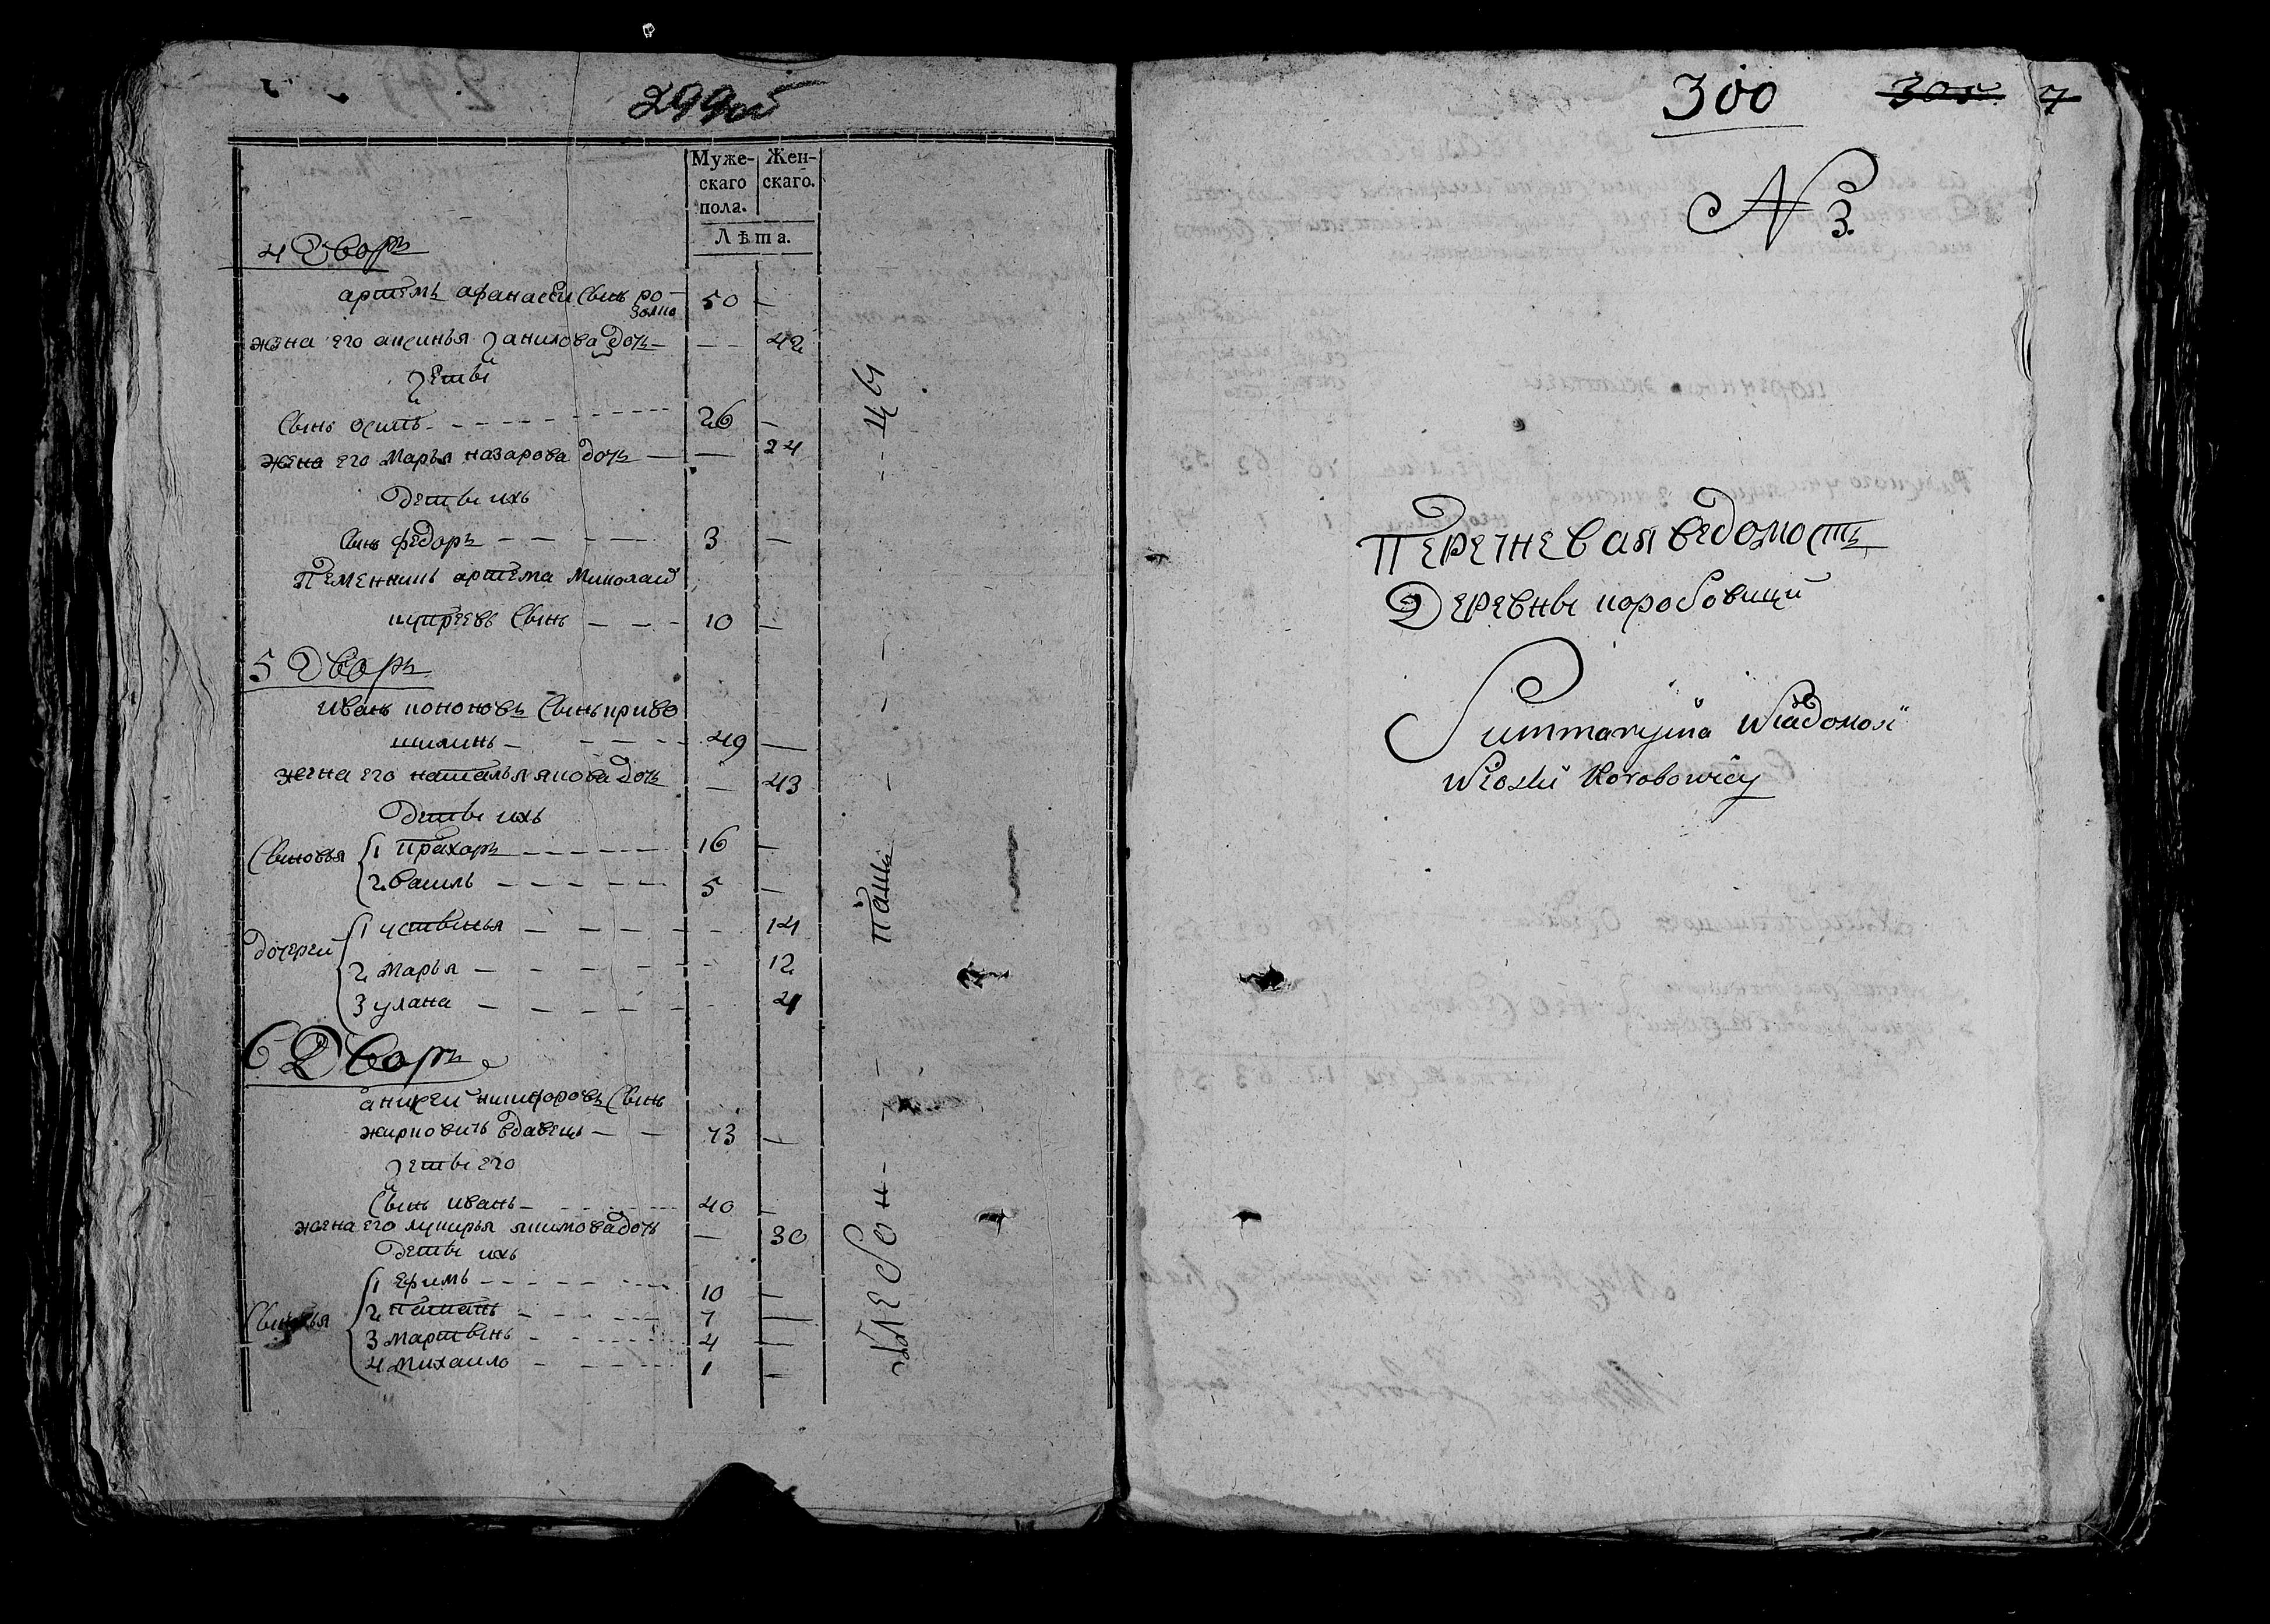 299об
Муже-
скаго
пола.
Жен-
скаго.
Лѣта.
4 Дворъ
артемъ афанасеи Сынъ ро-
50 —
жена его аксинья данилова дочь — — 42
дети
Сынъ осипъ 26 —
жена его Марья назарова дочь — — 24
Дети ихъ
Сынъ федоръ — 3 —
Племенникъ артема Миколай
Сынъ — 10 —
5 Дворъ
иванъ кононовъ Сынъ криво
шилинъ — 49 —
жена его наталья якова дочь — 43
Дети ихъ
Сыновья
1 Прахоръ — 16 —
2 василь — 5 —
дочерей
1 устинья — 14
2 Марья — 12
3 улана — 4
6 Дворъ
аникеи никифоровъ Сынъ
жирковичъ вдавецъ — 73 —
дети его
Сынъ иванъ — 40 —
жена его лукирья якимова дочь — 30
Дети ихъ
Сыновья
1 Ефимъ — 10 —
2 — 7 —
3 Мартынъ — 4 —
4 Михаило — 1 —
300
305
7
N 3.
Перечневая ведомость
Деревны коробовищи
Summaryina Wiadomość
Wioski Korobowicy